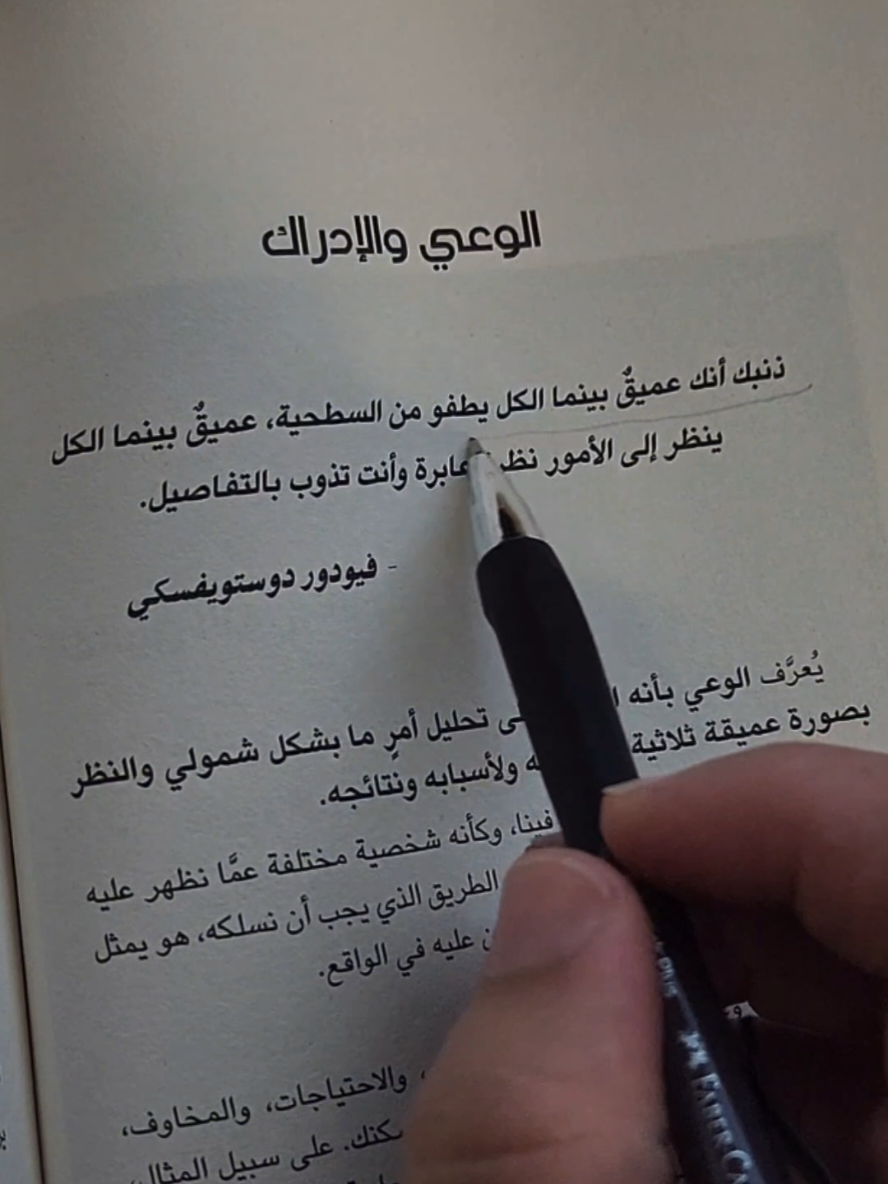 الوعي والإدراك
ذنبك أنك عميقٌ بينما الكل يطفو من السطحية، عميقٌ بينما الكل
ينظر إلى الأمور عابرة وأنت تذوب بالتفاصيل.
- فيودور دوستويفسكي
يُعرَّف الوعي بأنه تحليل أمرٍ ما بشكل شمولي والنظر
بصورة عميقة ثلاثية ولأسبابه ونتائجه.
فينا، وكأنه شخصية مختلفة عمَّا نظهر عليه
الطريق الذي يجب أن نسلكه، هو يمثل
عليه في الواقع.
والاحتياجات، والمخاوف،
على سبيل المثال،
FABER CA